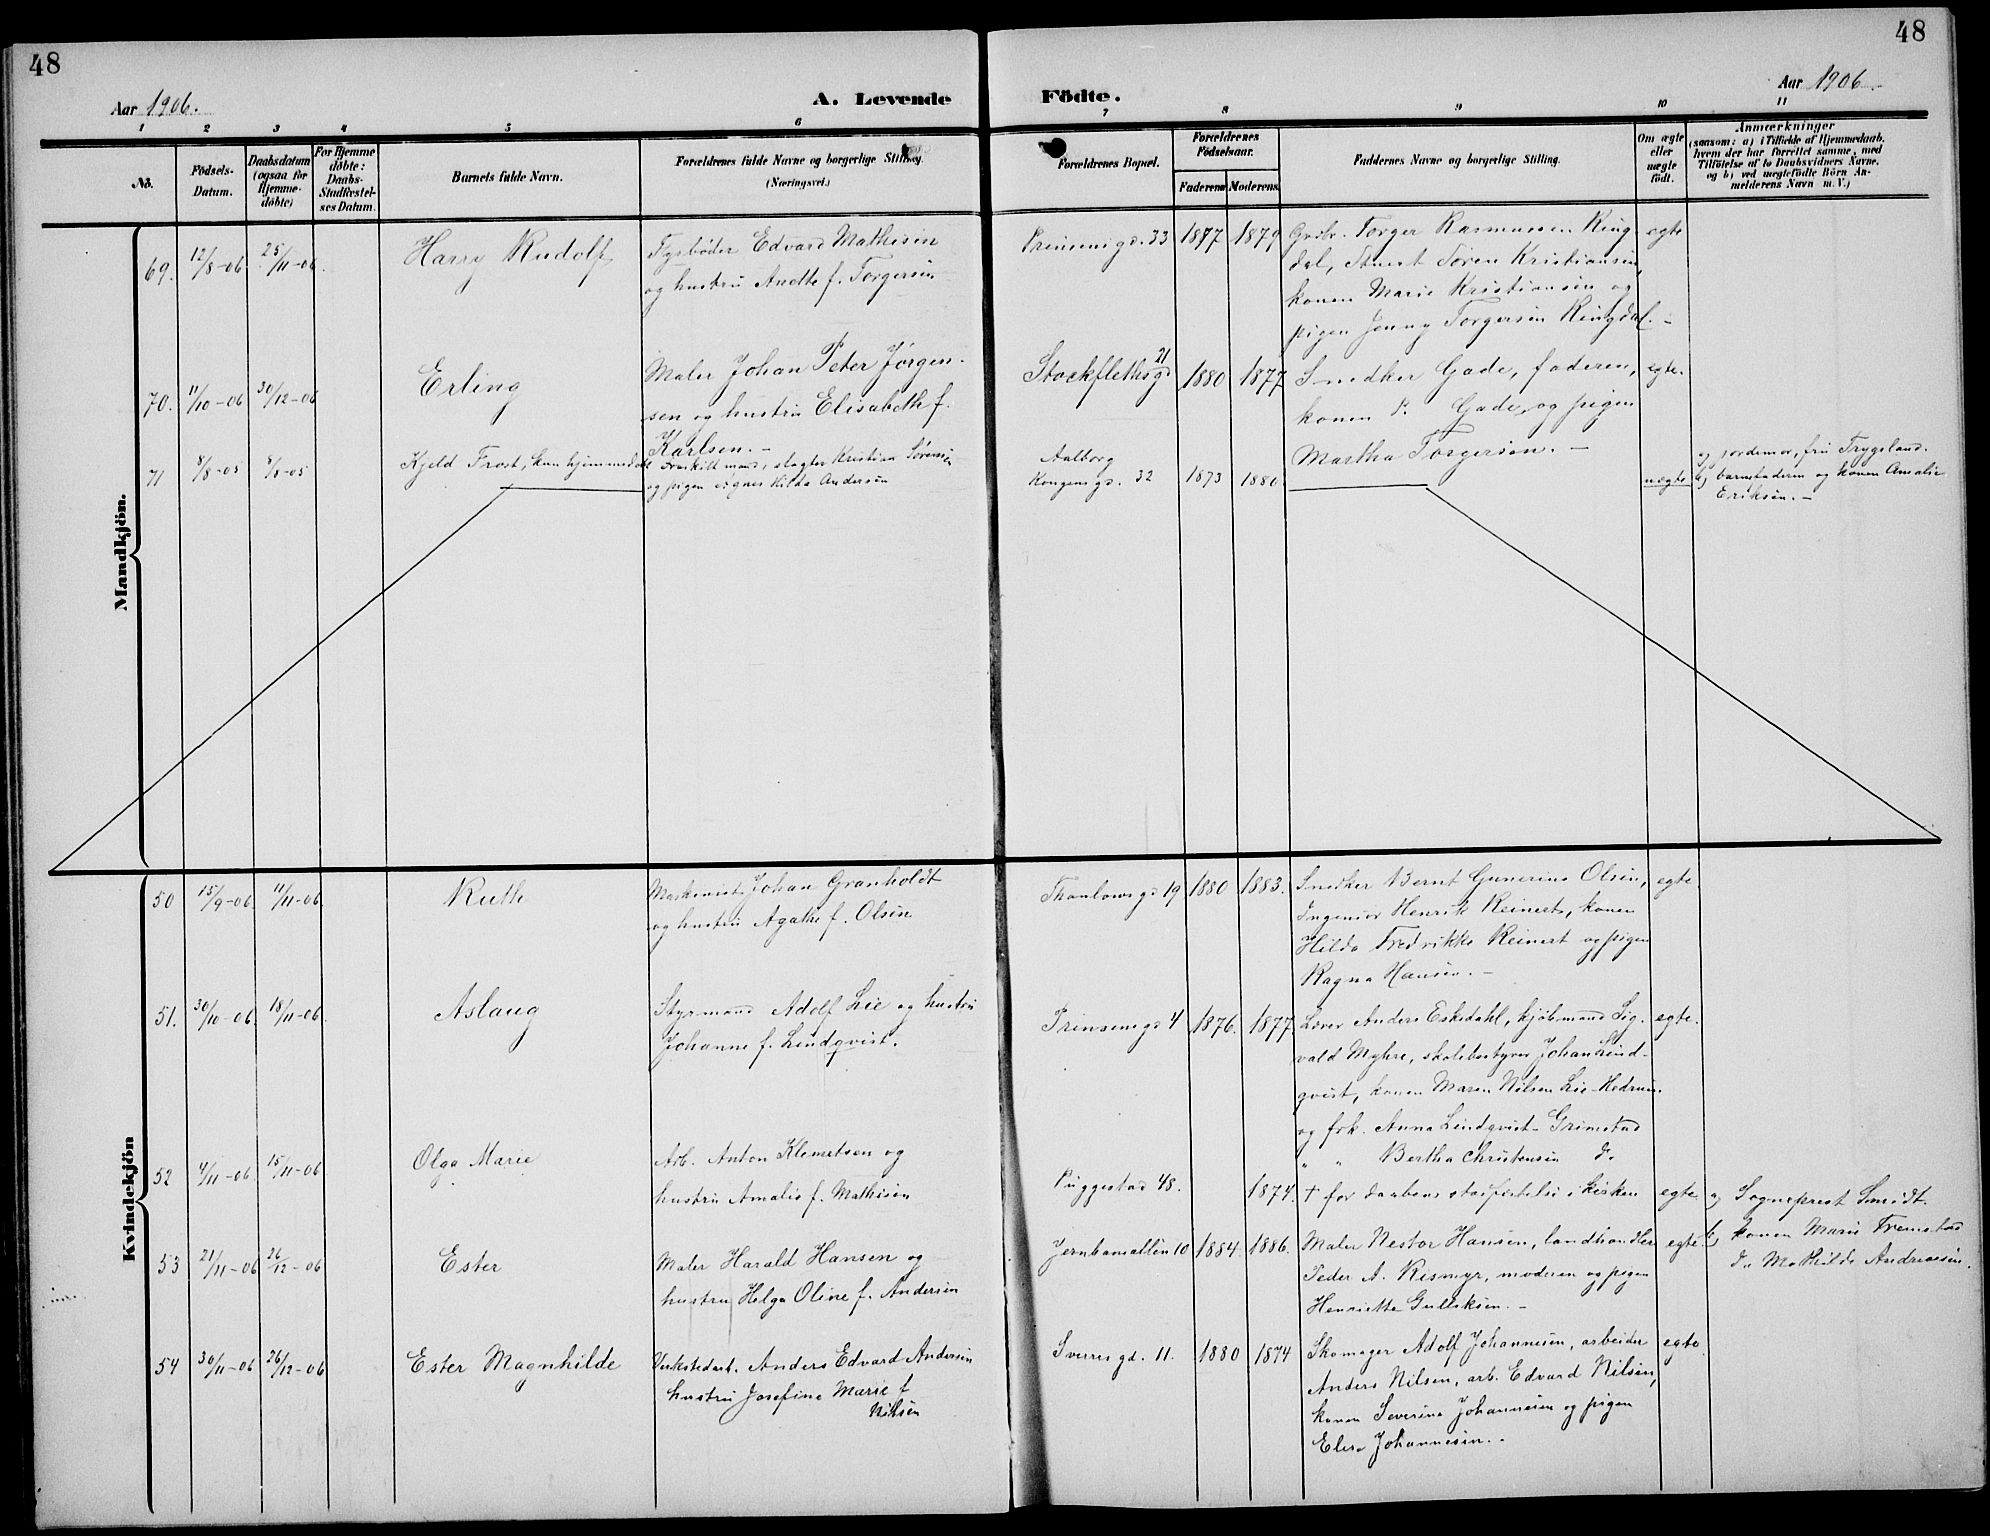 48
48
Aar 1906.
A. Levende
Födte.
Aar 1906.
1
2
3
4
5
6
7
8
9
10
11
No.
Födsels-
Datum.
Daabsdatum
(ogsaa for
Hjemme-
döbte)
For Hjemme
döbte:
Daabs-
Stadfæstel-
ses Datum.
Barnets fulde Navn.
Forældrenes fulde Navne og borgerlige Stilling.
(Næringsvei.)
Forældrenes Bopæl.
Forældrenes
Födselsaar.
Faderens
Moderens
Faddernes Navne og borgerlige Stilling.
Om ægte
eller
uægte
födt.
Anmærkninger
(saasom: a) i Tilfælde af Hjemmedaab,
hvem der har forrettet samme, med
Tilföielse af to Daabsvidners Navne.
og b) ved uægtefödte Börn An-
melderens Navn m. V.)
Mandkjön.
69.
12/8-06
25/11-06.
Harry Rudolf
Fyrbøder Edvard Mathisen
og hustru Anette f. Torgersen
Prinsensgd. 33
1877
1879
Grdbr. Torger Rasmussen Ring
dal, Stuert Søren Kristiansen,
konen Marie Kristiansen og
pigen Jenny Torgersen Ringdal. -
egte
70.
11/10-06
30/12-06
Erling
Maler Johan Peter Jørgen-
sen og hustru Elisabeth f.
Karlsen. -
Stockflethsgd 21
1880
1877
Snedker Gade, faderen,
konen P. Gade, og pigen
Martha Torgersen. -
egte.
71
8/8-05
8/8-05
Kjeld Frost, kun hjemmedøbt
Fraskilt mand, slagter Kristian Sørensen
og pigen Agnes Hilda Andersen
Aalborg
Kongensgd. 32
1873
1880
uegte
a) jordemor, fru Trygsland.
b) barnefaderen og konen Amalie
Eriksen. -
Kvindekjön
50
15/9-06
11/11-06
Ruth
Maskinist Johan Granholdt
og hustru Agathe f. Olsen
Thaulowsgd 19
1880
1883.
Snedker Bernt Gunerius Olsen,
Ingeniør Henrik Reinert, konen
Hilda Fredrikke Reinert og pigen
Ragna Hansen. -
egte
51.
30/10-06.
18/11-06
Aslaug
Styrmand Adolf Lie og hustru
Johanne f. Lindqvist.
Prinsensgd 4
1876.
1877
Lærer Anders Eskedahl, kjøbmand Sig-
vald Myhre, skolebestyrer Johan Lind-
qvist, konen Maren Nilsen Lie-Hedrum.
og frk. Anna Lindqvist- Grimstad
" " Bertha Christensen do
egte.
52
4/11-06
15/11-06
Olga Marie
Arb. Anton Klemetsen og
hustru Amalie f. Mathisen
Puggestad 48.
1874.
† før daabens stadfestelse i kirken
egte
a) Sogneprest Smidt.
b) konen Marie Tremstad
do Mathilde Andreasen.
53
21/11-06
26/12-06
Ester
Maler Harald Hansen og
hustru Helga Oline f. Andersen
Jernbanealléen 10
1884.
1886.
Maler Nestor Hansen, landhandler
Peder A. Rismyr, moderen og pigen
Henriette Gulliksen. -
egte
54
30/11-06
26/12-06
Ester Magnhilde
Verkstedarb. Anders Edvard Andersen
hustru Josefine Marie f.
Nilsen
Sverresgd. 11.
1880
1874
Skomager Adolf Johannesen, arbeider
Anders Nilsen, arb. Edvard Nilsen,
konen Severine Johannesen og pigen
Elise Johannesen. -
egte